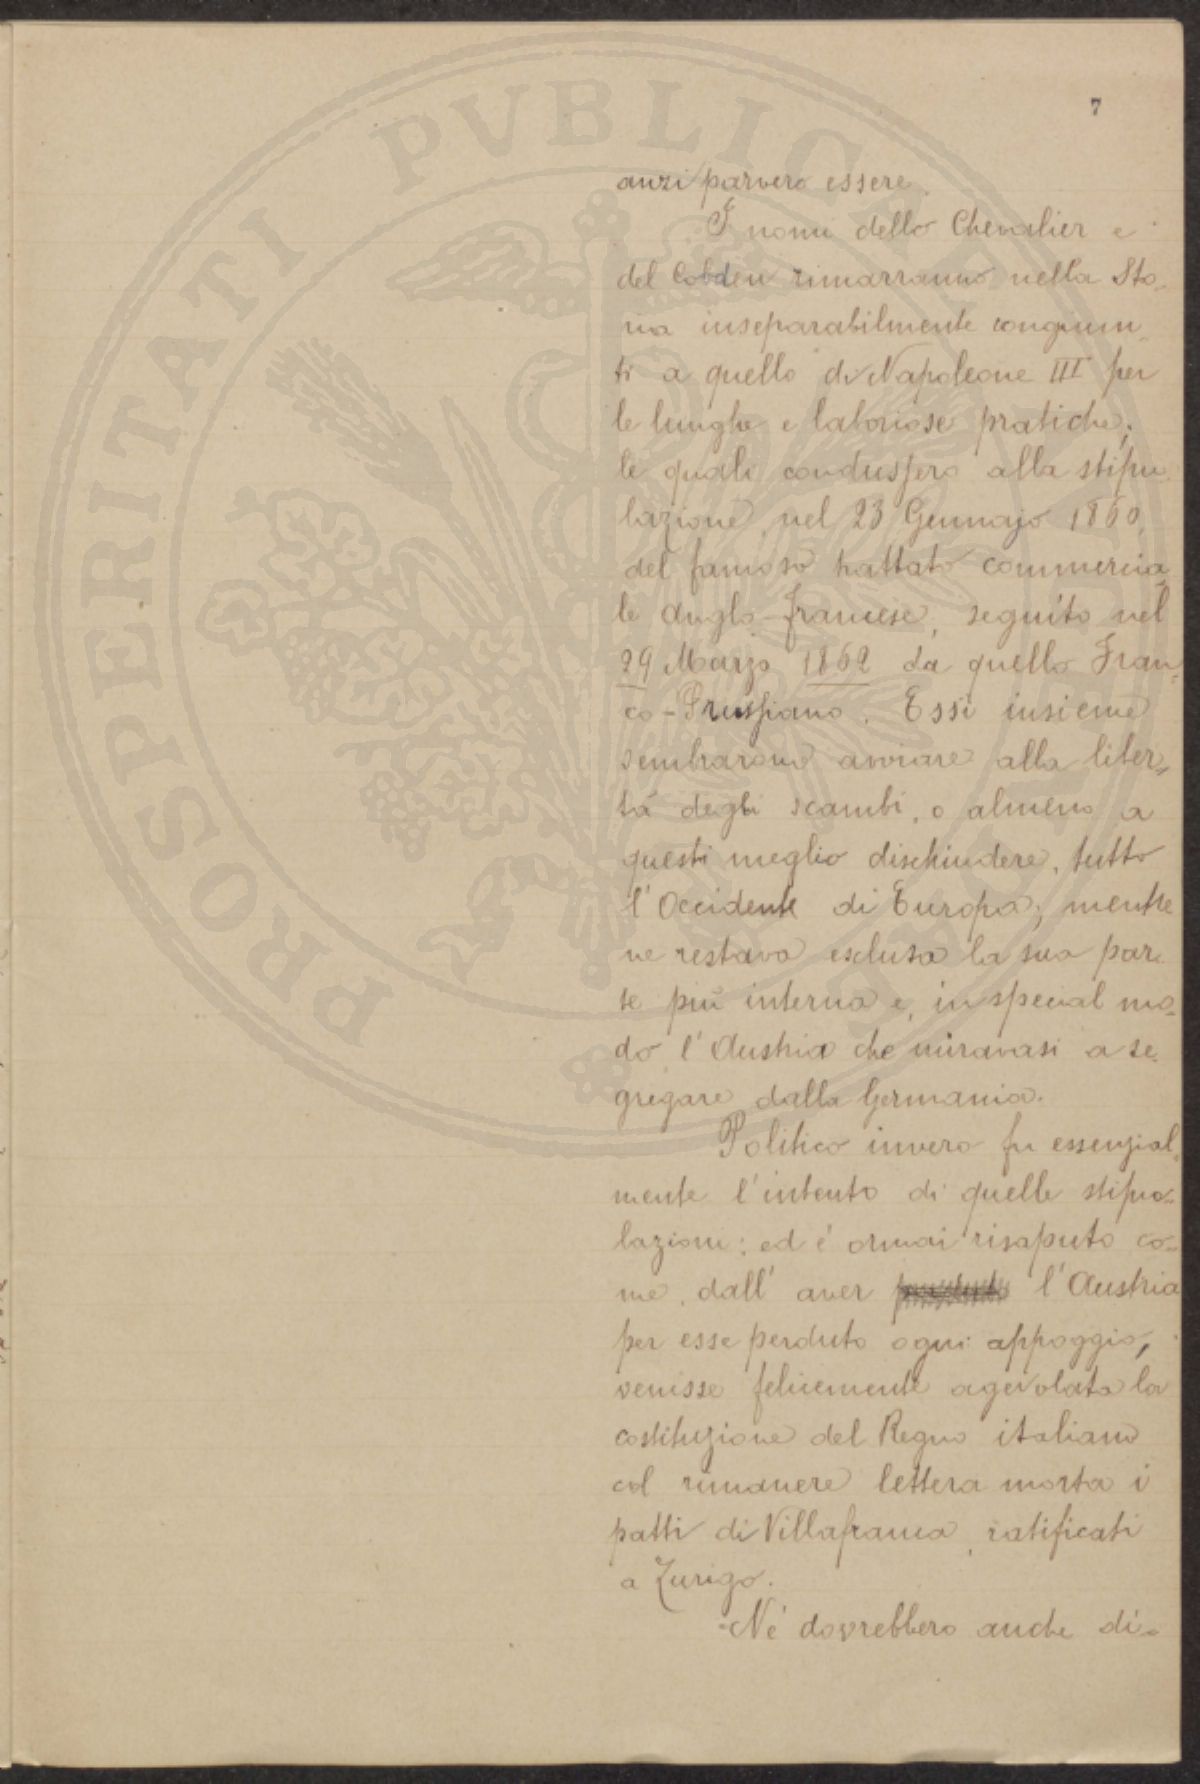 7
anzi parvero essere.
I nomi dello Chevalier e
del Cobden rimarranno nella Sto-
ria inseparabilmente congiun-
ti a quello di Napoleone III per
le lunghe e laboriose pratiche,
le quali condussero alla stipu-
lazione, nel 23 Gennajo 1860,
del famoso trattato commercia-
le Anglo-francese, seguito nel
29 Marzo 1862 da quello Fran-
co-Prussiano. Essi insieme
sembrarono avviare alla liber-
tà degli scambi, o almeno a
questi meglio dischiudere, tutto
l'Occidente di Europa; mentre
ne restava esclusa la sua par-
te più interna e, in special mo-
do l'Austria che miravasi a se-
gregare dalla Germania.
Politico invero fu essenzial-
mente l'intento di quelle stipu-
lazioni: ed é ormai risaputo co-
me, dall'aver l'Austria
per esse perduto ogni appoggio,
venisse felicemente agevolata la
costituzione del Regno italiano
col rimanere lettera morta i
patti di Villafranca, ratificati
a Zurigo.
Né dovrebbero anche di-
PROSPERITATI PVBLICAE